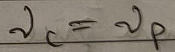 ν_c = ν_p